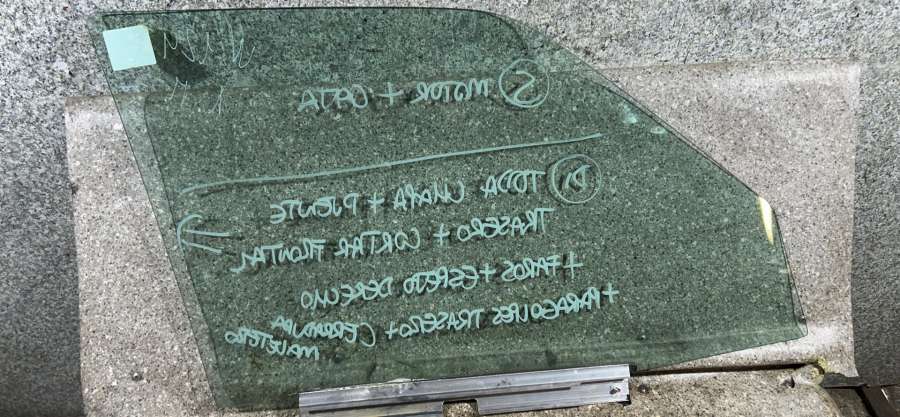 S MOTOR + CAJA
D TODA CHAPA + PUENTE
TRASERO + CORTAR FRONTAL
+ FAROS + ESPEJO DERECHO
+ PARAGOLPES TRASERO + CERRADURA
MALETERO